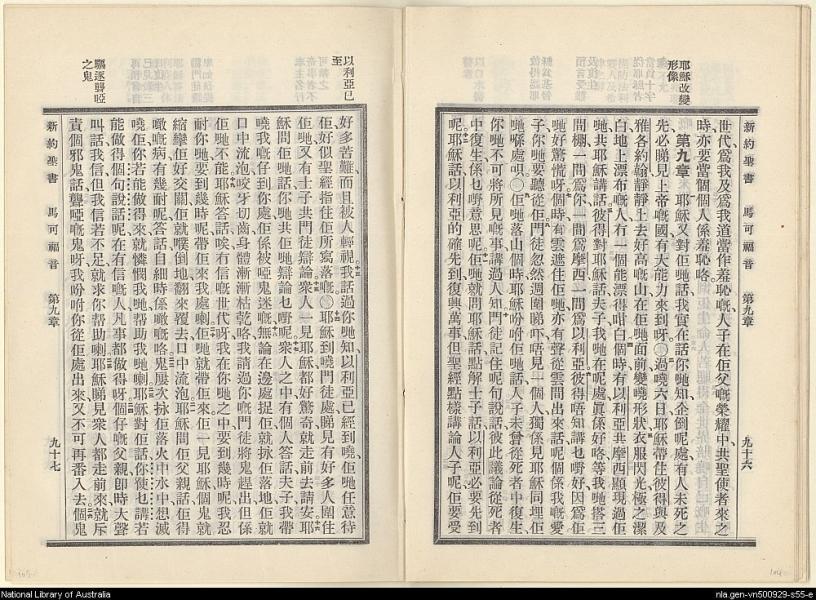 耶穌改變
形像
新約聖書 馬可福音 第九章 九十六
世代、爲我及爲我道當作羞恥嘅、人子在佢父嘅榮耀中共聖使者來之
時、亦要當個個人係羞恥咯、
第九章 耶穌又對佢哋話、我實在話你哋知、企倒呢處有人未死之
先、必睇見上帝嘅國有大能力來到呀、○過曉六日、耶穌帶住彼得與及
雅各約翰、靜靜上去好高嘅山、在佢哋面前變曉形狀、衣服閃光極之潔
白、地上漂布嘅人、有一個能漂得咁白、個時有以利亞共摩西顯現過佢
哋、共耶穌講話、彼得對耶穌話、夫子、我哋在呢處眞係好咯、等我哋搭三
間棚、一間爲你、一間爲摩西、一間爲以利亞、彼得唔知講乜嘢好、因爲佢
哋好驚慌呀、個時有雲遮住佢哋、亦有聲從雲間出來、話、呢個係我嘅愛
子、你哋要聽從佢、門徒忽然週圍睇吓、唔見一個人、獨係見耶穌同埋佢
哋喺處唄、○佢哋落山個時、耶穌吩咐佢哋話、人子未曾從死者中復生、
你哋不可將所見嘅事講過人知、門徒記住呢句說話、彼此議論、從死者
中復生、係乜嘢意思呢、佢哋就問耶穌話、點解士子話以利亞必要先到
呢、耶穌話、以利亞的確先到、復興萬事、但聖經點樣講論人子呢、佢要受
以利亞已
至
驅逐聾啞
之鬼
好多苦難、而且被人輕視、我話過你哋知、以利亞已經到曉、佢哋任意待
佢、好似聖經指住佢所寫落嘅、○耶穌到曉門徒處、睇見有好多人圍住
佢哋、又有士子共門徒辯論、衆人一見耶穌、都好驚奇、就走前去請安、耶
穌問佢哋話、你哋共佢哋辯論乜嘢呢、衆人之中有個人答話、夫子、我帶
曉我嘅仔到你處、佢係被啞鬼迷嘅、無論在邊處捉佢、就捒佢落地、佢就
口中流泡、咬牙切齒、身體漸漸枯乾咯、我請過你嘅門徒將鬼趕出、但係
佢哋不能、耶穌答話、唉、有信嘅世代呀、我在你哋之中要到幾時呢、我忍
耐你哋要到幾時呢、帶佢來我處喇、佢哋就帶佢來、佢一見耶穌、個鬼就
縮攣佢好交關、佢就噗倒地、翻來覆去、口中流泡、耶穌問佢父親話、佢得
噉嘅病有幾耐呢、答話、自細時係噉嘅咯、鬼屢次捒佢落火中水中、想滅
曉佢、你若能做得來、就憐憫我哋、帮助我哋喇、耶穌對佢話、你使乜講若
能做得個句說話呢、在有信嘅人、凡事都做得呀、個仔嘅父親卽時大聲
叫話、我信、但我信若不足、就求你帮助喇、耶穌睇見衆人都走前來、就斥
責個邪鬼話、聾啞嘅鬼呀、我吩咐你從佢處出來、又不可再番入去、個鬼
新約聖書 馬可福音 第九章 九十七
National Library of Australia
nla.gen-vn500929-s55-e